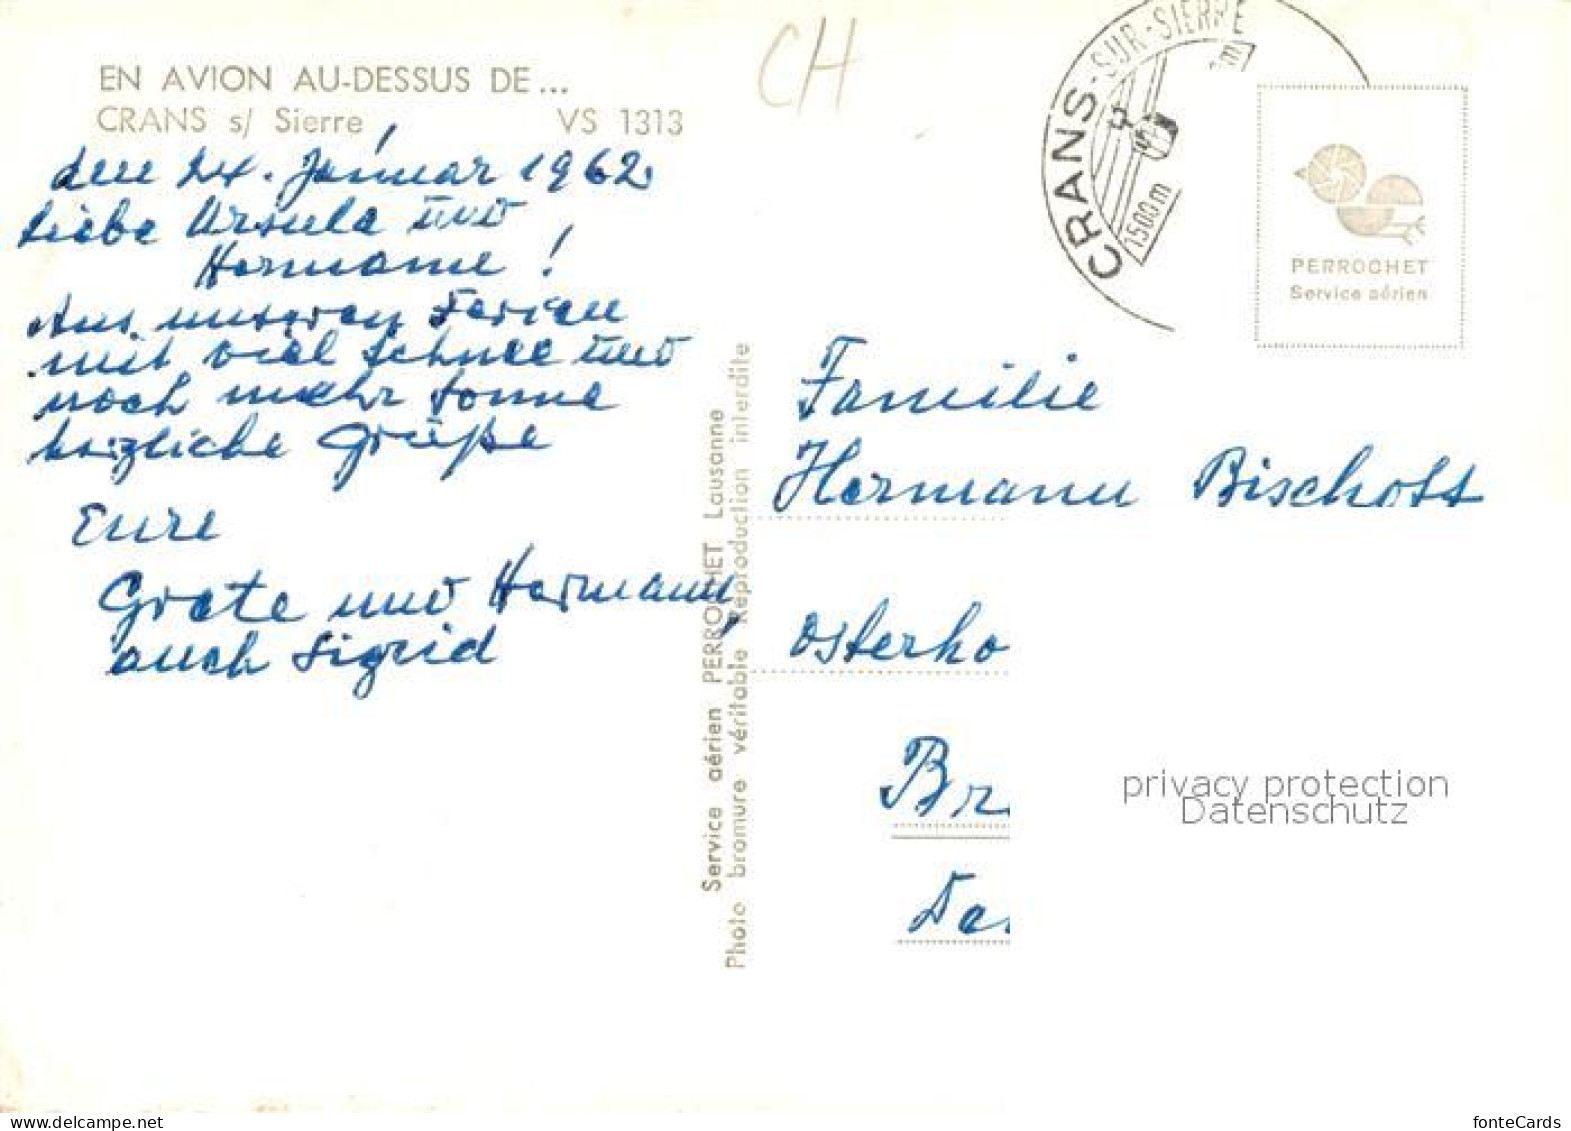 EN AVION AU-DESSUS DE...
CRANS s/ Sierre VS 1313
den 24. Januar 1962
Liebe Ursula und
Hermann !
Aus unseren Ferien
mit viel Schnee und
noch mehr Sonne
herzliche Grüße
Eure
Grete und Hermann,
auch Sigrid
Service aérien PERROCHET Lausanne
Photo bromure véritable Reproduction interdite
CH
CRANS-SUR-SIERRE
1500 m
PERROCHET
Service aérien
Familie
Hermann Bischoff
Osterho
Br
privacy protection
Datenschutz
fonteCards
delcampe.net